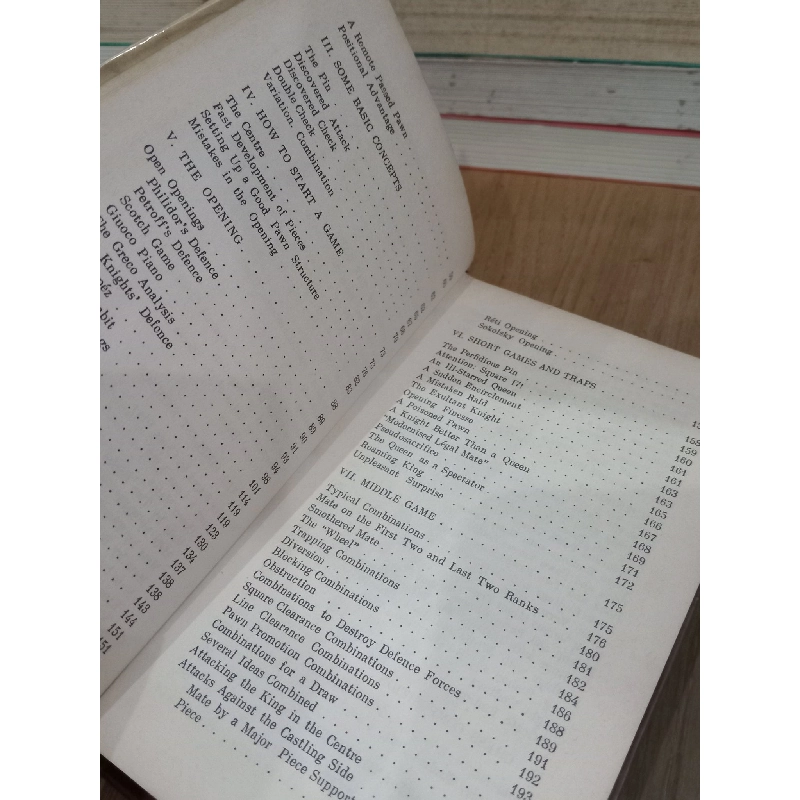 A Remote Passed Pawn
Positional Advantage
III. SOME BASIC CONCEPTS
The Pin
Discovered Attack
Discovered Check
Double Check
Variation. Combination
IV. HOW TO START A GAME
The Centre
Fast Development of Pieces
Setting Up a Good Pawn Structure
Mistakes in the Opening
V. THE OPENING
Open Openings
Philidor's Defence
Petroff's Defence
Scotch Game
Giuoco Piano
The Greco Analysis
Knights' Defence
98
101
114
119
119
123
130
134
137
138
138
143
144
151
151
Réti Opening
Sokolsky Opening
VI. SHORT GAMES AND TRAPS
The Perfidious Pin
Attention: Square f7! 159
An Ill-Starred Queen 160
A Sudden Encirclement 161
A Mistaken Raid 161
The Exultant Knight 163
Opening Finesse 163
A Poisoned Pawn 165
A Knight Better Than a Queen 166
"Modernised Légal Mate" 167
Pseudosacrifice 168
The Queen as a Spectator 169
Roaming King 171
Unpleasant Surprise 172
VII. MIDDLE GAME 175
Typical Combinations 175
Mate on the First Two and Last Two Ranks 176
Smothered Mate 180
The "Wheel" 181
Trapping Combinations 182
Diversion 184
Blocking Combinations 186
Obstruction 188
Combinations to Destroy Defence Forces 189
Square Clearance Combinations 191
Line Clearance Combinations 192
Pawn Promotion Combinations 193
Combinations for a Draw
Several Ideas Combined
Attacking the King in the Centre
Attacks Against the Castling Side
Mate by a Major Piece Support
Piece